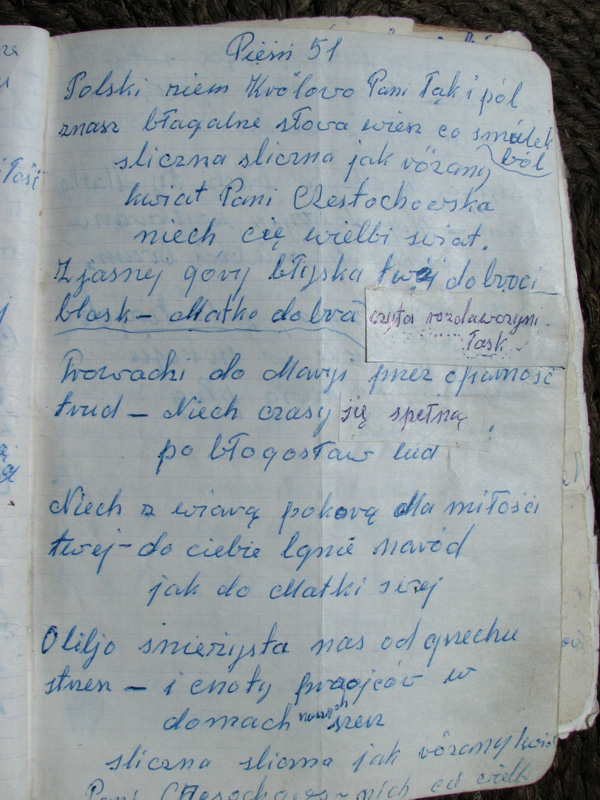 Pieśń 51
Polski ziem Królowo Pani łąk i pól
znasz błagalne słowa wiesz co smutek
ból
sliczna sliczna jak różany
kwiat Pani Częstochowska
niech cię wielbi swiat.
Z jasnej góry błyska twej dobroci
blask – Matko dobra czysta rozdawczyni
łask.
Prowadki do Maryi przez ciemność
trud – Niech czasy się spełną
po błogosław lud
Niech z wiarą pokorą dla miłości
twej – do ciebie lgnie naród
jak do Matki swej
O liljo śnieżysta nas od grzechu
strzez – i cnoty praojców w
domach naszych szerz
sliczna sliczna jak różany kwiat
Pani niech cię wielbi